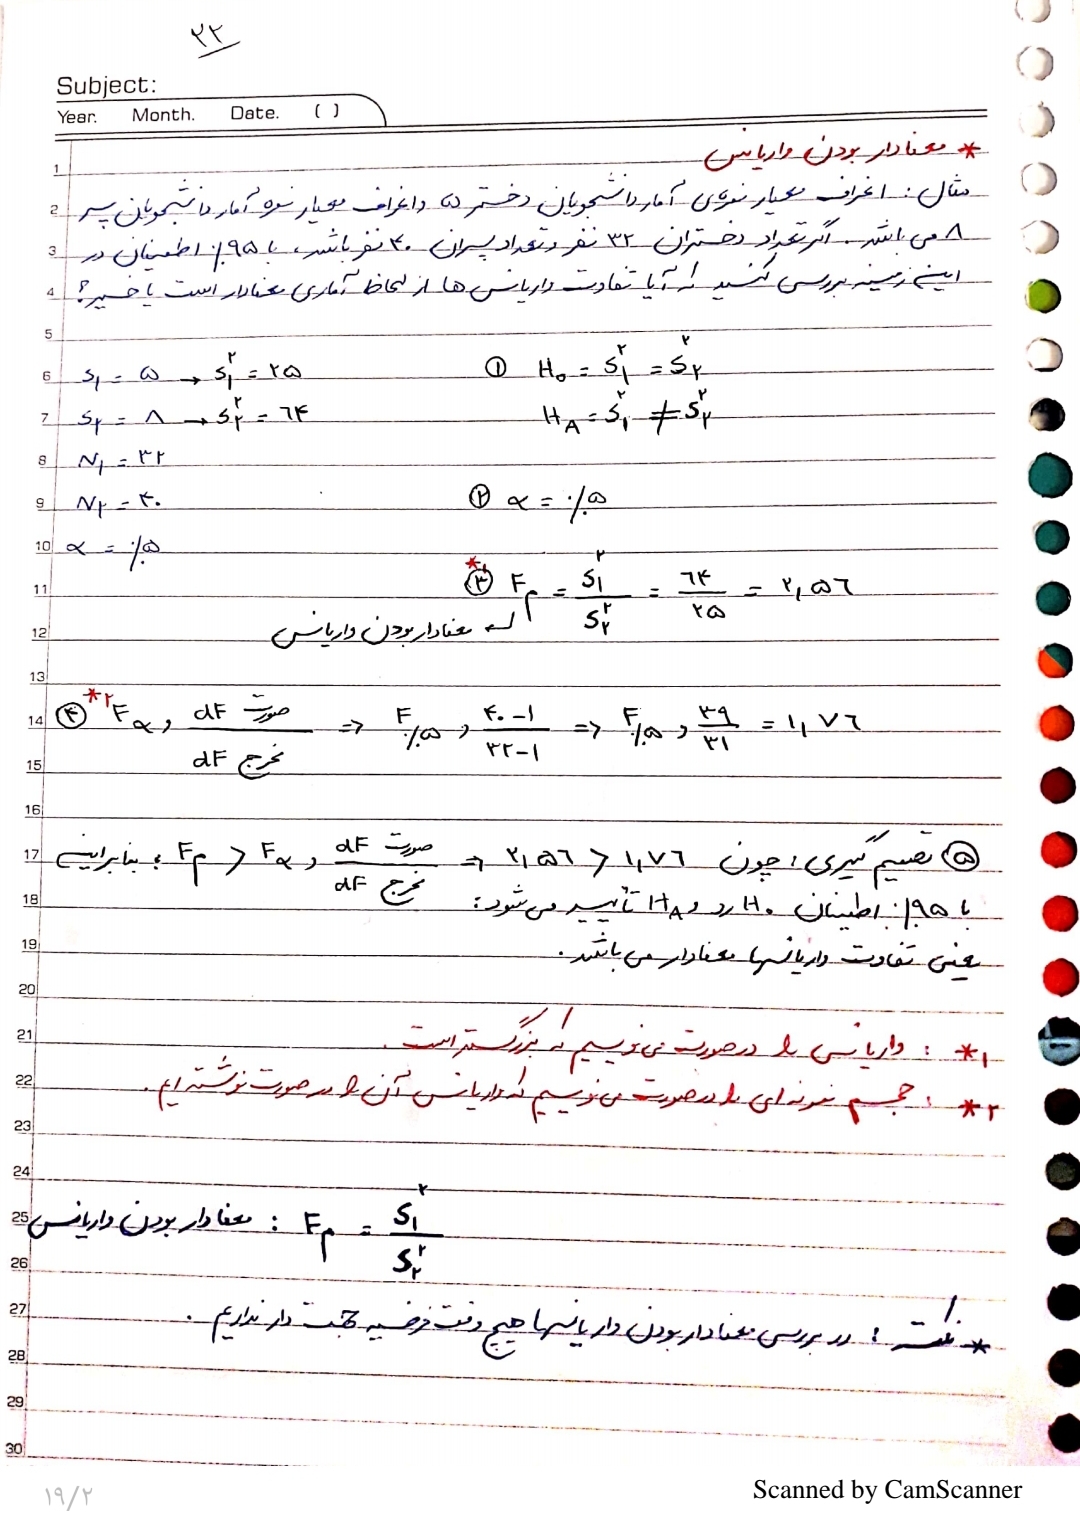 ۲۲
Subject:
Year. Month. Date. ( )
* معنادار بودن واریانس
مثال : انحراف معیار نمره‌ی آمار دانشجویان دختر ۵ و انحراف معیار نمره آمار دانشجویان پسر
۸ می باشد. اگر تعداد دختران ۳۲ نفر و تعداد پسران ۴۰ نفر باشد، با ۹۵٪ اطمینان در
این زمینه بررسی کنید که آیا تفاوت واریانس ها از لحاظ آماری معنادار است یا خیر؟
S₁ = ۵ → S₁² = ۲۵ ① H₀ = S₁² = S₂²
S₂ = ۸ → S₂² = ۶۴ H_A = S₁² ≠ S₂²
N₁ = ۳۲
N₂ = ۴۰ ② α = ٪۵
α = ٪۵
*۱ ③ Fم = S₁² / S₂² = ۶۴ / ۲۵ = ۲,۵۶
↳ معنادار بودن واریانس
④ *۲ Fα , dF صورت / dF مخرج => F٪۵ , ۴۰-۱ / ۳۲-۱ => F٪۵ , ۳۹ / ۳۱ = ۱,۷۶
⑤ تصمیم گیری : چون ۱,۷۶ < ۲,۵۶ => Fم > Fα , dF صورت / dF مخرج ؛ بنابراین
با ۹۵٪ اطمینان H₀ رد و H_A تأیید می شود؛
یعنی تفاوت واریانسها معنادار می باشد.
*۱ : واریانسی را در صورت می نویسیم که بزرگتر است.
*۲ : حجم نمونه ای را در صورت می نویسیم که واریانس آن را در صورت نوشته ایم.
معنادار بودن واریانس : Fم = S₁² / S₂²
* نکته : در بررسی معنادار بودن واریانسها هیچ وقت فرضیه جهت دار نداریم.
۱۹/۲
Scanned by CamScanner
1
2
3
4
5
6
7
8
9
10
11
12
13
14
15
16
17
18
19
20
21
22
23
24
25
26
27
28
29
30